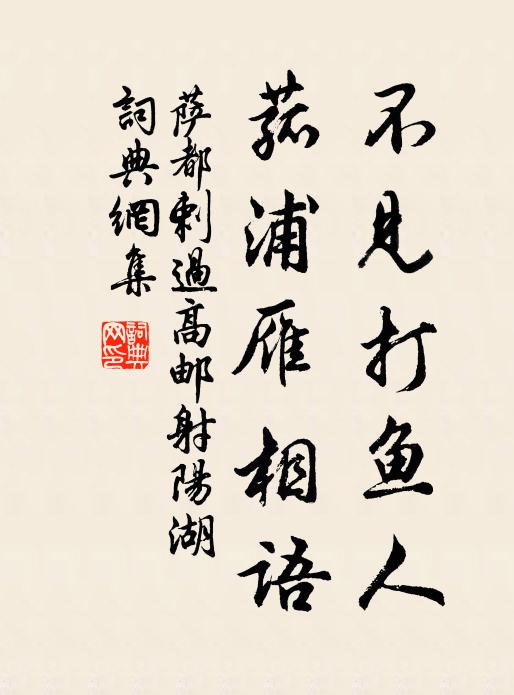 不见打鱼人
菰浦雁相语
萨都剌過高邮射陽湖
詞典網集
詞典网印